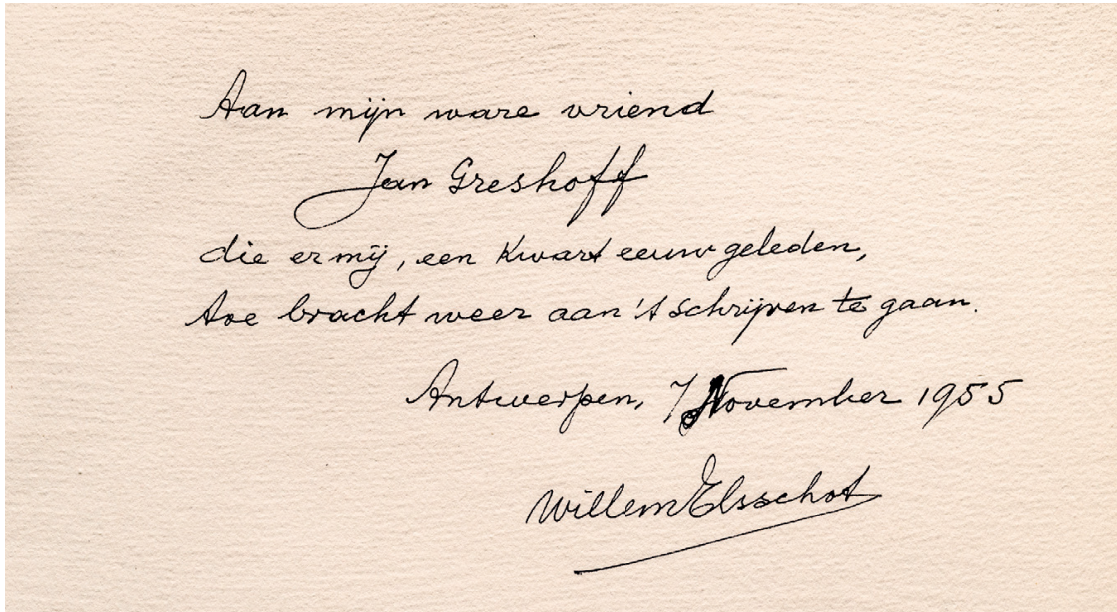 Aan mijn ware vriend
Jan Greshoff
die er mij, een kwart eeuw geleden,
toe bracht weer aan 't schrijven te gaan.
Antwerpen, 7 November 1955
Willem Elsschot